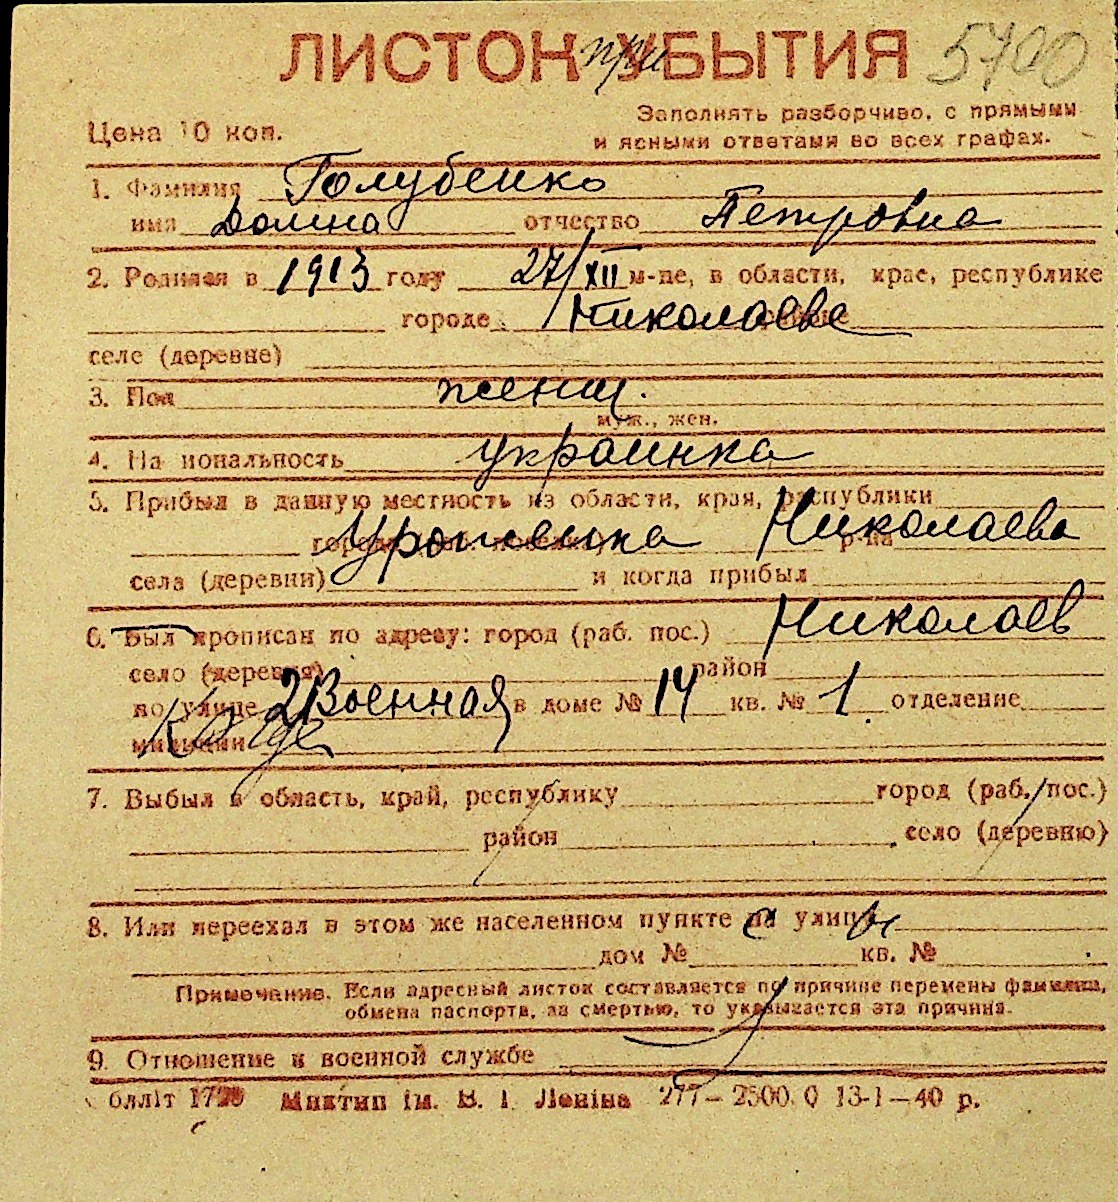 ЛИСТОК при УБЫТИЯ 5700
Заполнять разборчиво, с прямыми
Цена 10 коп. и ясными ответами во всех графах.
1. Фамилия Голубенко
имя Домна отчество Петровна
2. Родился в 1913 году 27/XII м-це, в области, крае, республике
городе Николаеве
селе (деревне)
3. Пол женщ.
муж., жен.
4. Национальность украинка
5. Прибыл в данную местность из области, края, республики
города (раб. поселка) Уроженка Николаева р-на
села (деревни) и когда прибыл
6. Был прописан по адресу: город (раб. пос.) Николаев
село (деревня) район
по улице 2 Военная в доме № 14 кв. № 1 отделение
милиции
7. Выбыл в область, край, республику город (раб. пос.)
район село (деревню)
8. Или переехал в этом же населенном пункте на улицу
дом № кв. №
Примечание. Если адресный листок составляется по причине перемены фамилии,
обмена паспорта, за смертью, то указывается эта причина.
9. Отношение к военной службе
Миктип ім. В. І. Леніна 277—2500.0 13-1—40 р.